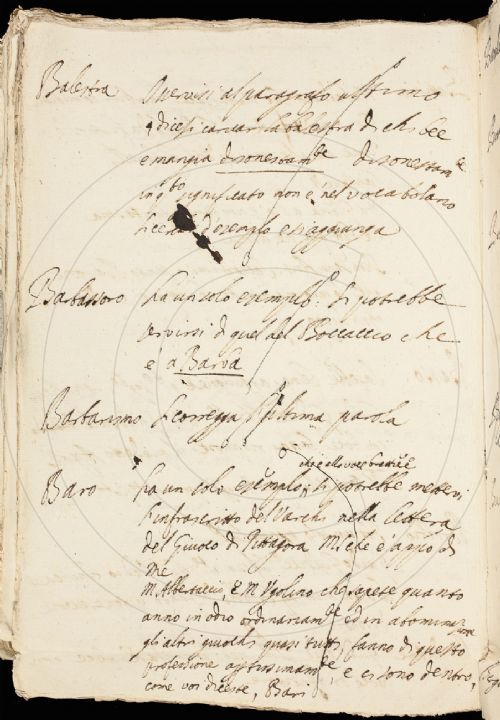 Balestra
Osservisi al paragrafo ultimo
dicesi caricar la balestra di chi bee
e mangia disonestam.te disonestam.te
in q.to significato non è nel vocabolario
d'esempio e si aggiunga
Barbassoro ha un solo esempio. Si potrebbe
servirsi di quel del Boccaccio che
è a Barba
Barbarismo si corregga l'ultima parola
che è alla voce
Baro ha un solo esempio, si potrebbe mettervi
l'infrascritto del Varchi nella lettera
del Giuoco di Pittagora M
me
M. Albertaccio, E M. Ugolino che sapete quanto
anno in odio ordinariam.te ed in abominaz.ne
gli altri giuochi quasi tutti, fanno di questo
professione apertissimam.te, e ci sono dentro,
come voi diceste, Bari